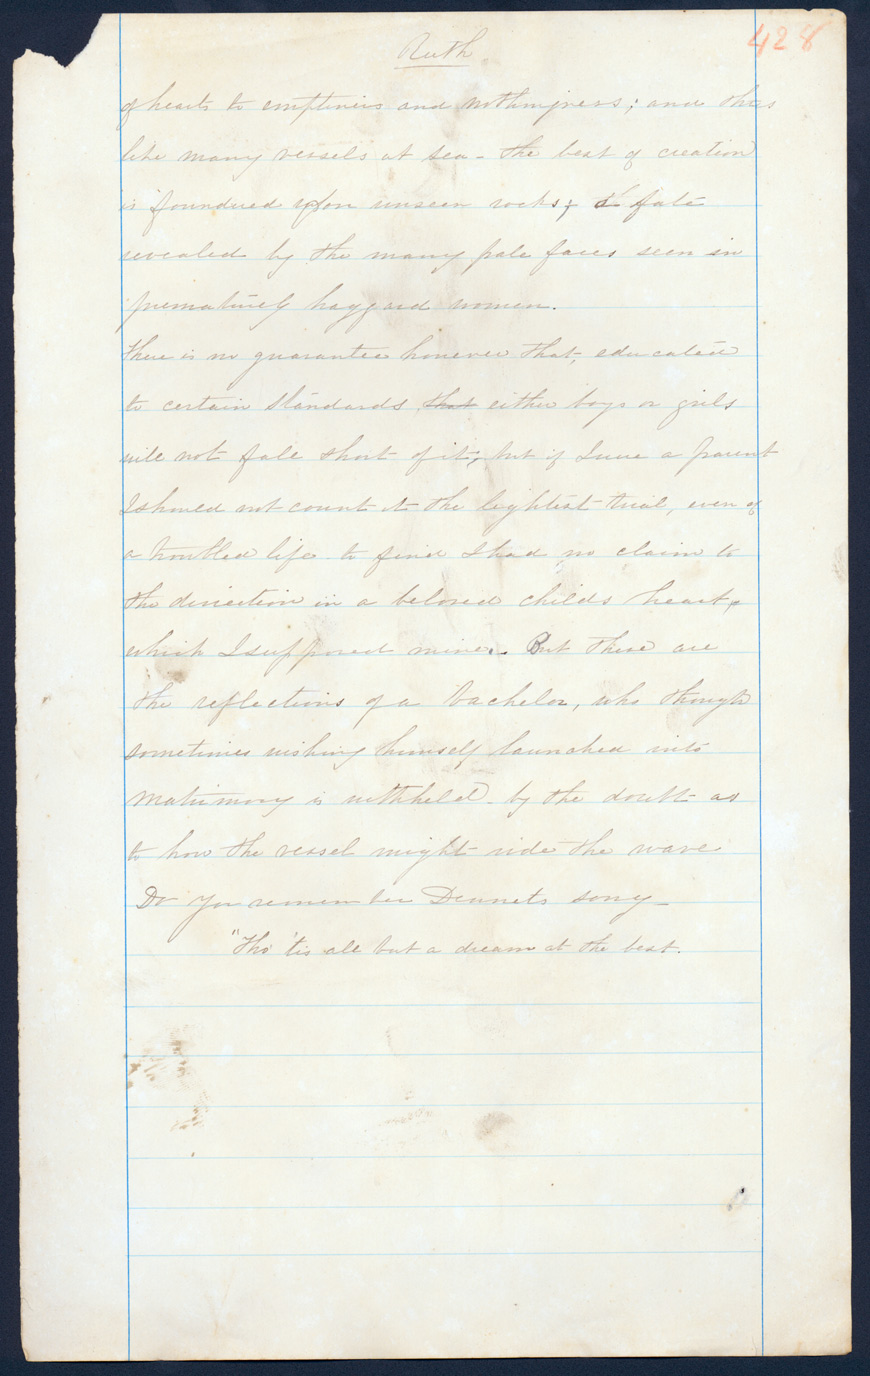 Ruth
428
of hearts to emptiness and nothingness; and thus
like many vessels at sea - the best of creation
is foundered upon unseen rocks; a fate
revealed by the many pale faces seen in
prematurely haggard women.
There is no guarantee however that, educated
to certain standards that either boys or girls
will not fall short of it; but if I were a parent
I should not count it the lightest trial, even of
a troubled life to find I had no claim to
the direction in a beloved childs heart,
which I supposed mine. - But these are
the reflections of a bachelor, who though
sometimes wishing himself launched into
matrimony is withheld by the doubt as
to how the vessel might ride the wave.
Do you remember Dennets song -
"Tho' 'tis all but a dream at the best.